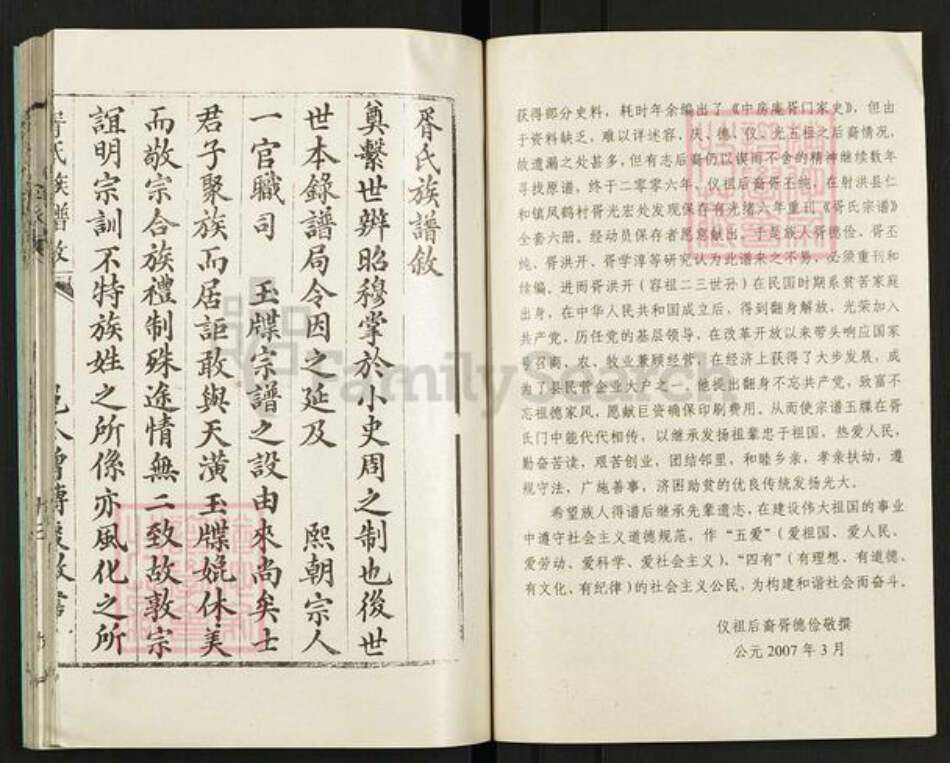 获得部分史料，耗时年余编出了《中房庵胥门家史》，但由
于资料缺乏，难以详述容、庆、德、仪、光五祖之后裔情况，
故遗漏之处甚多，但有志后裔仍以锲而不舍的精神继续数年
寻找原谱，终于二零零六年，仪祖后裔胥丕纯，在射洪县仁
和镇凤鹤村胥光宏处发现保存有光绪六年重刊《胥氏宗谱》
全套六册。经动员保存者愿意献出，于是族人胥德俭、胥丕
纯、胥洪开、胥学淳等研究认为此谱来之不易，必须重刊和
续编。进而胥洪开（容祖二三世孙）在民国时期系贫苦家庭
出身，在中华人民共和国成立后，得到翻身解放，光荣加入
共产党，历任党的基层领导，在改革开放以来带头响应国家
号召商、农、牧业兼顾经营，在经济上获得了大步发展，成
为了县民营企业大户之一，他提出翻身不忘共产党，致富不
忘祖德家风，愿献巨资确保印刷费用。从而使宗谱玉牒在胥
氏门中能代代相传，以继承发扬祖辈忠于祖国、热爱人民，
勤奋苦读，艰苦创业，团结邻里，和睦乡亲，孝亲扶幼，遵
规守法，广施善事，济困助贫的优良传统发扬光大。
希望族人得谱后继承先辈遗志，在建设伟大祖国的事业
中遵守社会主义道德规范，作“五爱”（爱祖国、爱人民、
爱劳动、爱科学、爱社会主义）、“四有”（有理想、有道德、
有文化、有纪律）的社会主义公民，为构建和谐社会而奋斗。
仪祖后裔胥德俭敬撰
公元2007年3月
胥氏族譜敘
奠繫世辨昭穆掌於小史周之制也後世
世本錄譜局令因之延及　熙朝宗人
一官職司　玉牒宗譜之設由來尚矣士
君子聚族而居詎敢與天潢玉牒媲休美
而敬宗合族禮制殊途情無二致故敦宗
誼明宗訓不特族姓之所係亦風化之所
胥氏族譜敘
FamilySearch